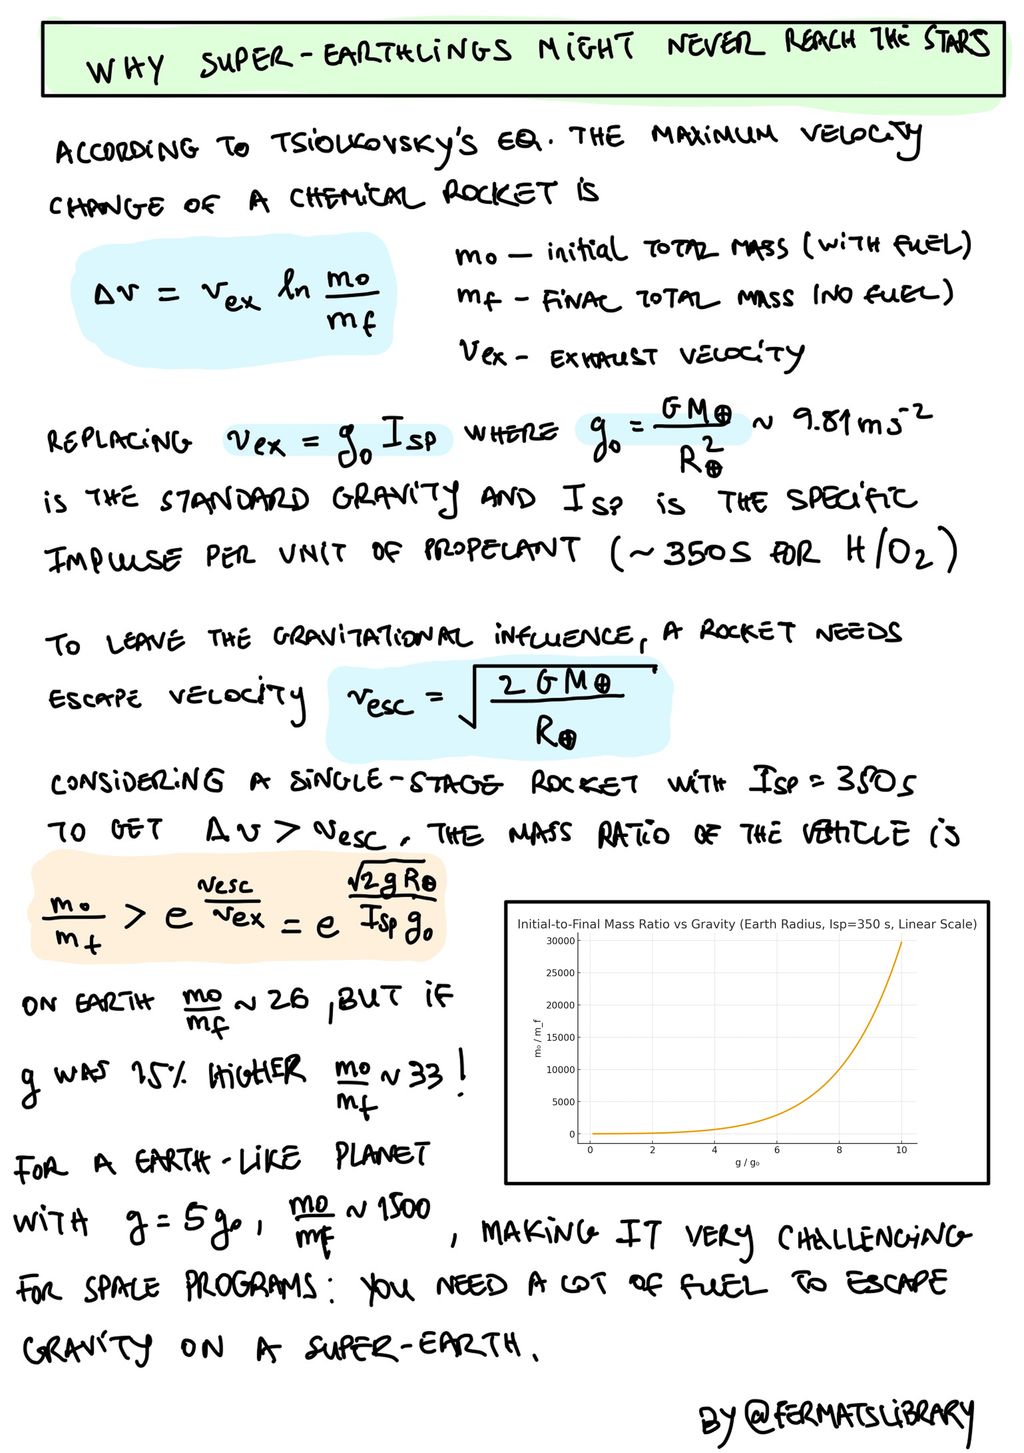 WHY SUPER-EARTHLINGS MIGHT NEVER REACH THE STARS
ACCORDING TO TSIOLKOVSKY'S EQ. THE MAXIMUM VELOCITY
CHANGE OF A CHEMICAL ROCKET IS
Δv = v_ex ln m₀/m_f
m₀ — initial TOTAL MASS (WITH FUEL)
m_f - FINAL TOTAL MASS (NO FUEL)
V_ex - EXHAUST VELOCITY
REPLACING v_ex = g₀ I_SP WHERE g₀ = GM⊕/R⊕² ~ 9.81 ms⁻²
IS THE STANDARD GRAVITY AND I_SP IS THE SPECIFIC
IMPULSE PER UNIT OF PROPELANT (~350S FOR H/O₂)
TO LEAVE THE GRAVITATIONAL INFLUENCE, A ROCKET NEEDS
ESCAPE VELOCITY v_ESC = √(2GM⊕/R⊕)
CONSIDERING A SINGLE-STAGE ROCKET WITH I_SP = 350s
TO GET Δv > v_ESC, THE MASS RATIO OF THE VEHICLE IS
m₀/m_f > e^(v_ESC/v_ex) = e^(√(2gR⊕)/(I_SP g₀))
Initial-to-Final Mass Ratio vs Gravity (Earth Radius, Isp=350 s, Linear Scale)
30000
25000
20000
15000
10000
5000
0
m₀ / m_f
0 2 4 6 8 10
g / g₀
ON EARTH m₀/m_f ~ 26, BUT IF
g WAS 15% HIGHER m₀/m_f ~ 33!
FOR A EARTH-LIKE PLANET
WITH g = 5g₀, m₀/m_f ~ 1500, MAKING IT VERY CHALLENGING
FOR SPACE PROGRAMS: YOU NEED A LOT OF FUEL TO ESCAPE
GRAVITY ON A SUPER-EARTH.
BY @FERMATSLIBRARY